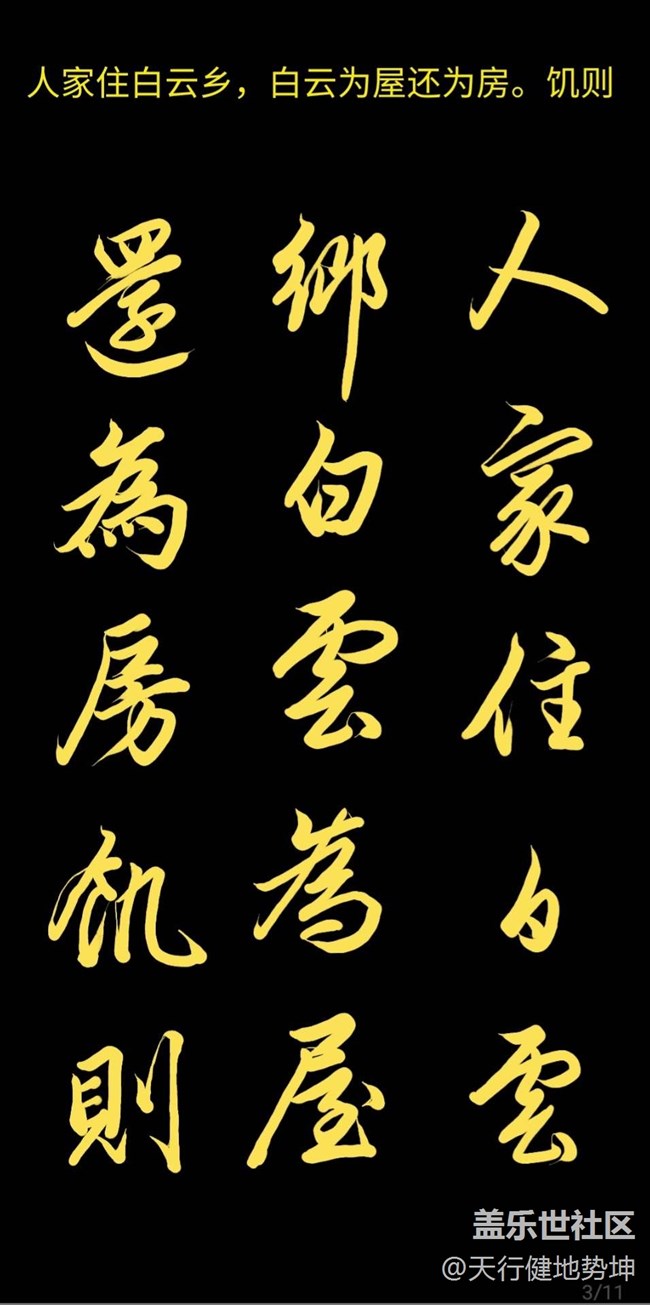 人家住白云乡，白云为屋还为房。饥则
人家住白雲
鄉白雲為屋
還為房飢則
盖乐世社区
@天行健地势坤
3/11